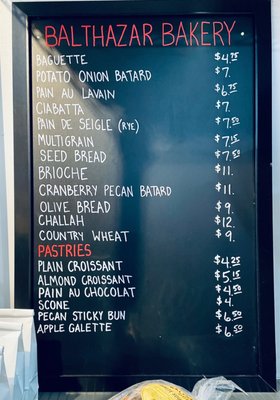 BALTHAZAR BAKERY
BAGUETTE $4.75
POTATO ONION BATARD $7.
PAIN AU LAVAIN $6.75
CIABATTA $7.
PAIN DE SEIGLE (RYE) $7.50
MULTIGRAIN $7.15
SEED BREAD $7.50
BRIOCHE $11.
CRANBERRY PECAN BATARD $11.
OLIVE BREAD $9.
CHALLAH $12.
COUNTRY WHEAT $9.
PASTRIES
PLAIN CROISSANT $4.25
ALMOND CROISSANT $5.15
PAIN AU CHOCOLAT $4.50
SCONE $4.
PECAN STICKY BUN $6.50
APPLE GALETTE $6.50